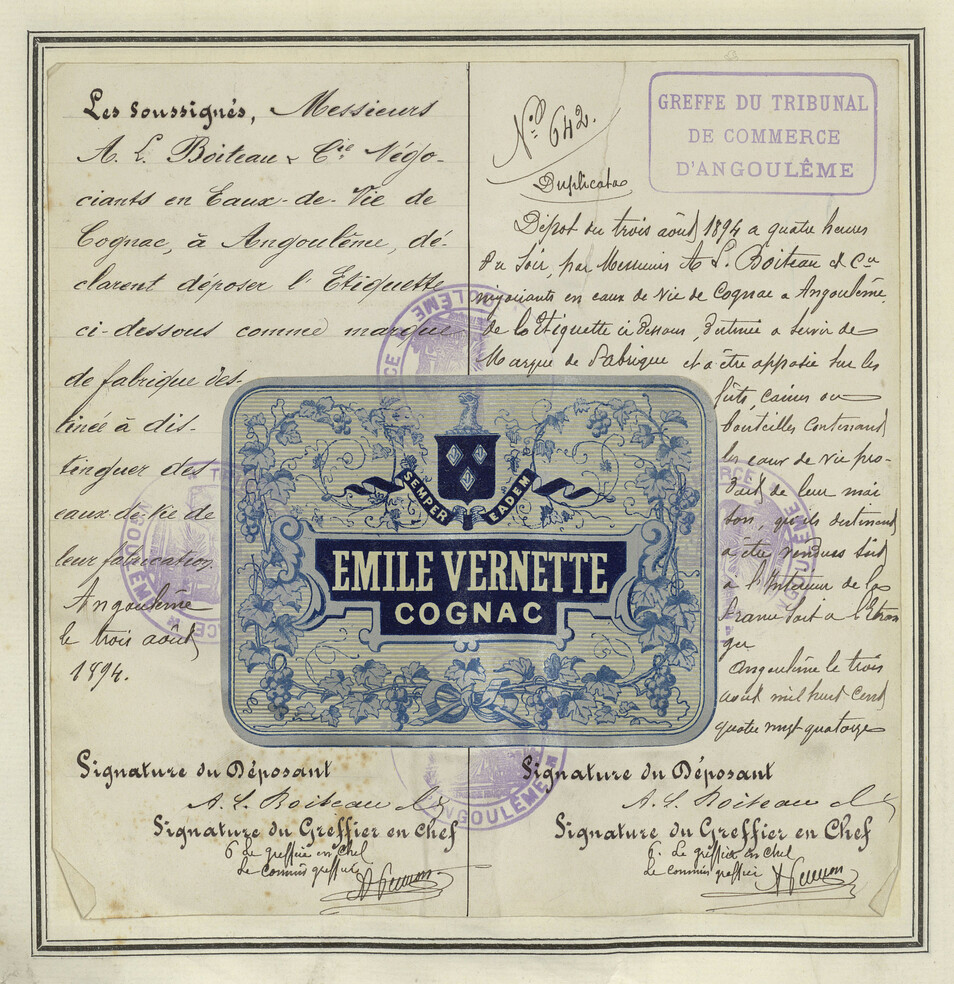 Les soussignés, Messieurs
A. L. Boiteau & Cie Négo-
ciants en Eaux-de-Vie de
Cognac, à Angoulême, dé-
clarent déposer l'Etiquette
ci-dessous comme marque
de fabrique des-
tinée à dis-
tinguer des
eaux-de-vie de
leur fabrication.
Angoulême
le trois août
1894.
No 642.
Duplicata
GREFFE DU TRIBUNAL
DE COMMERCE
D'ANGOULÊME
Dépot du trois août 1894 a quatre heures
du soir, par Messieurs A. L. Boiteau et Cie
négociants en eaux de vie de Cognac a Angoulême,
de l'Etiquette ci dessous, destinée a servir de
Marque de Fabrique et a être apposée sur les
fûts, caisses ou
bouteilles contenant
les eaux de vie pro-
duit de leur mai
son, qu'ils destinent
a être vendues soit
a l'Interieur de la
France soit a l'Etran
ger
Angoulême le trois
août mil huit cent
quatre vingt quatorze
SEMPER EADEM
EMILE VERNETTE
COGNAC
ANGOULÊME
Signature du Déposant
A. L. Boiteau Cie
Signature du Greffier en Chef
Le greffier en chef
Le commis greffier
Signature du Déposant
A. L. Boiteau Cie
Signature du Greffier en Chef
Le greffier en chef
Le commis greffier